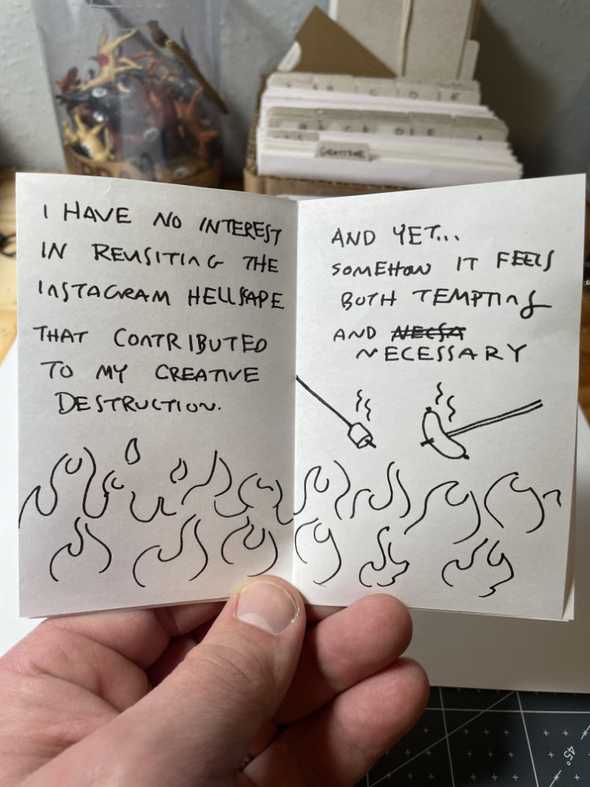 I HAVE NO INTEREST
IN REVISITING THE
INSTAGRAM HELLSCAPE
THAT CONTRIBUTED
TO MY CREATIVE
DESTRUCTION.
AND YET...
SOMEHOW IT FEELS
BOTH TEMPTING
AND NECSA
NECESSARY
45°